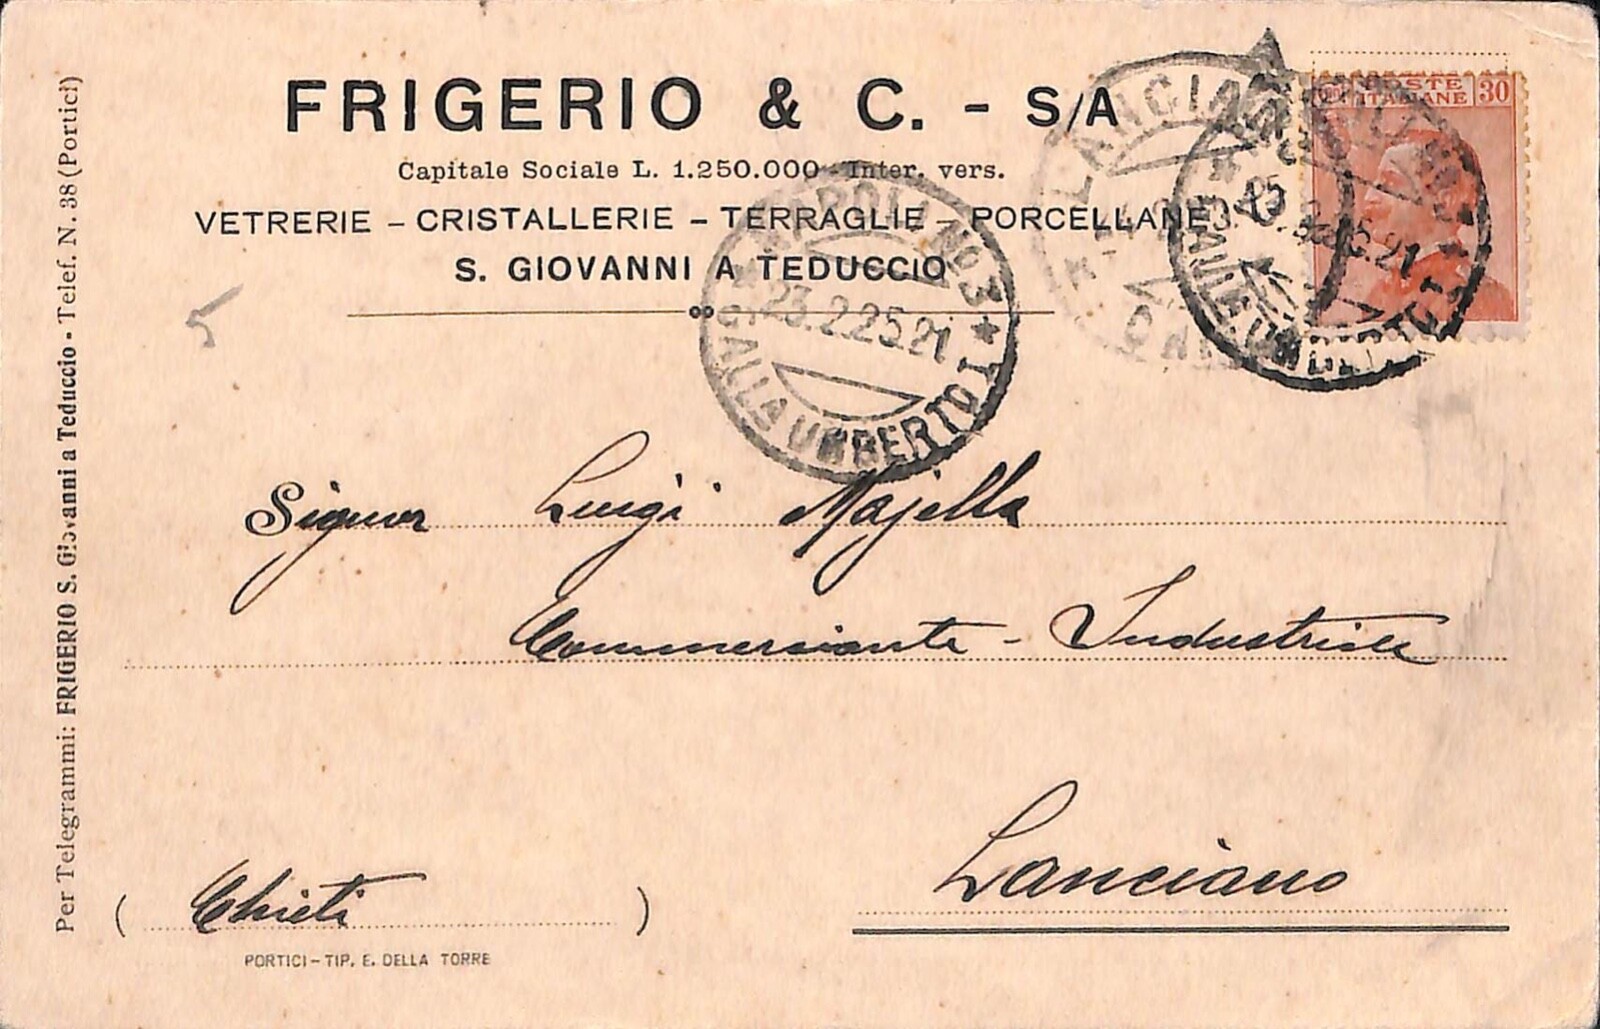 FRIGERIO & C. - S/A
Capitale Sociale L. 1.250.000 - Inter. vers.
VETRERIE - CRISTALLERIE - TERRAGLIE - PORCELLANE
S. GIOVANNI A TEDUCCIO
Per Telegrammi: FRIGERIO S. Giovanni a Teduccio - Telef. N. 38 (Portici)
POSTE
ITALIANE
30
LANCIANO
NAPOLI No 3
23.2.25.21
GALLA UMBERTO I
5
Signor Luigi Majella
Commerciante - Industriale
Lanciano
( Chieti )
PORTICI - TIP. E. DELLA TORRE